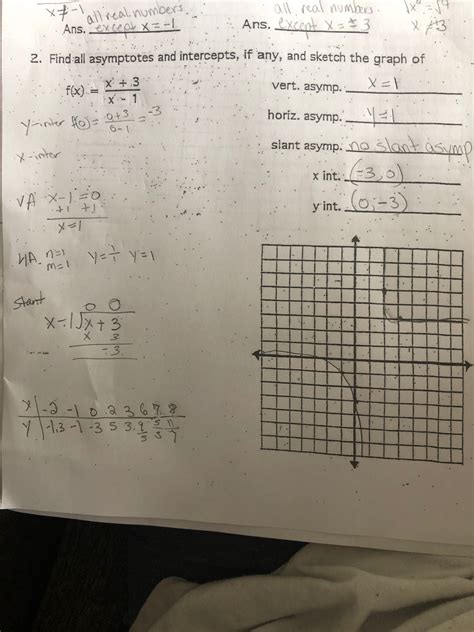 x ≠ -1 all real numbers
Ans. except x = -1
all real numbers
Ans. except x = ± 3
2. Find all asymptotes and intercepts, if any, and sketch the graph of
f(x) = x + 3 / x - 1
vert. asymp. x = 1
horiz. asymp. y = 1
slant asymp. no slant asymp
x int. (-3, 0)
y int. (0, -3)
y-inter f(0) = 0+3 / 0-1 = -3
x-inter
VA x-1 = 0
+1 +1
x = 1
HA n=1
m=1
y = 1/1 y = 1
slant
0 0
x-1 x + 3
x 3
-3
x -2 -1 0 2 3 6 7 8
y -1.3 -1 -3 5 3